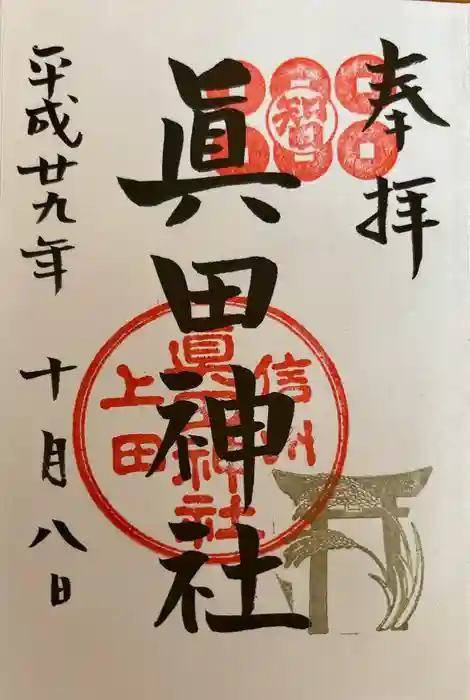 奉拝
眞田神社
信州
眞田神社
上田
平成廿九年 十月八日